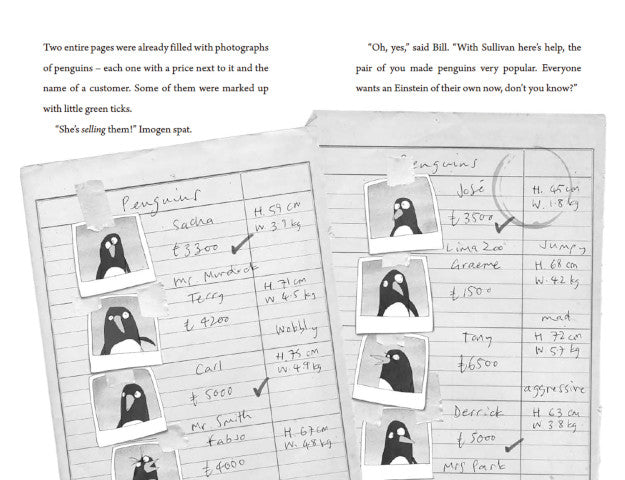 Two entire pages were already filled with photographs
of penguins – each one with a price next to it and the
name of a customer. Some of them were marked up
with little green ticks.
“She’s selling them!” Imogen spat.
“Oh, yes,” said Bill. “With Sullivan here’s help, the
pair of you made penguins very popular. Everyone
wants an Einstein of their own now, don’t you know?”
Penguins
Sacha
H. 59 cm
W. 3.9 kg
£3300
Mr. Murdick
Terry
H. 71 cm
W. 4.5 kg
£4200
Wobbly
Carl
H. 75 cm
W. 4.9 kg
£5000
Mr. Smith
Fabio
H. 67 cm
W. 4.8 kg
£4000
Penguins
José
H. 45 cm
W. 1.8 kg
£3500
Lima Zoo
Jumpy
Graeme
H. 68 cm
W. 4.2 kg
£1500
mad
Tony
H 72 cm
W. 5.7 kg
£6500
aggressive
Derrick
H. 63 cm
W 3.8 kg
£5000
Mrs Park